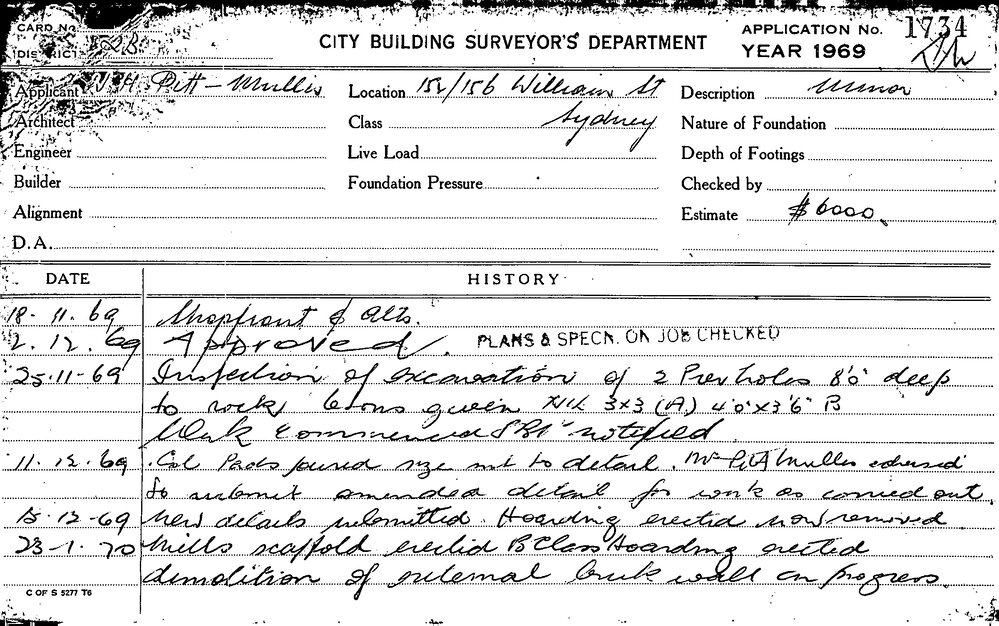 CARD No.
DISTRICT
CITY BUILDING SURVEYOR'S DEPARTMENT
APPLICATION No. 1734
YEAR 1969
Applicant J H Pitt-Mullis Location 152/156 William St Description Minor
Architect Class Sydney Nature of Foundation
Engineer Live Load Depth of Footings
Builder Foundation Pressure Checked by
Alignment Estimate $6000
D.A.
DATE HISTORY
18.11.69 Shopfront & Alts.
2.12.69 Approved. PLANS & SPECN. ON JOB CHECKED
25-11-69 Inspection of excavation of 2 Pier holes 8'0" deep
to rock 6 tons given 3x3 (A) 4'0"x3'6" B
Work commenced notified
11.12.69 Col Pads poured size not to detail. Mr Pitt Mullis advised
to submit amended detail for work as carried out.
15-12-69 New details submitted. Hoarding erected now removed
23-1.70 Mills scaffold erected B Class Hoarding erected
demolition of external brick wall in progress.
C OF S 5277 T6